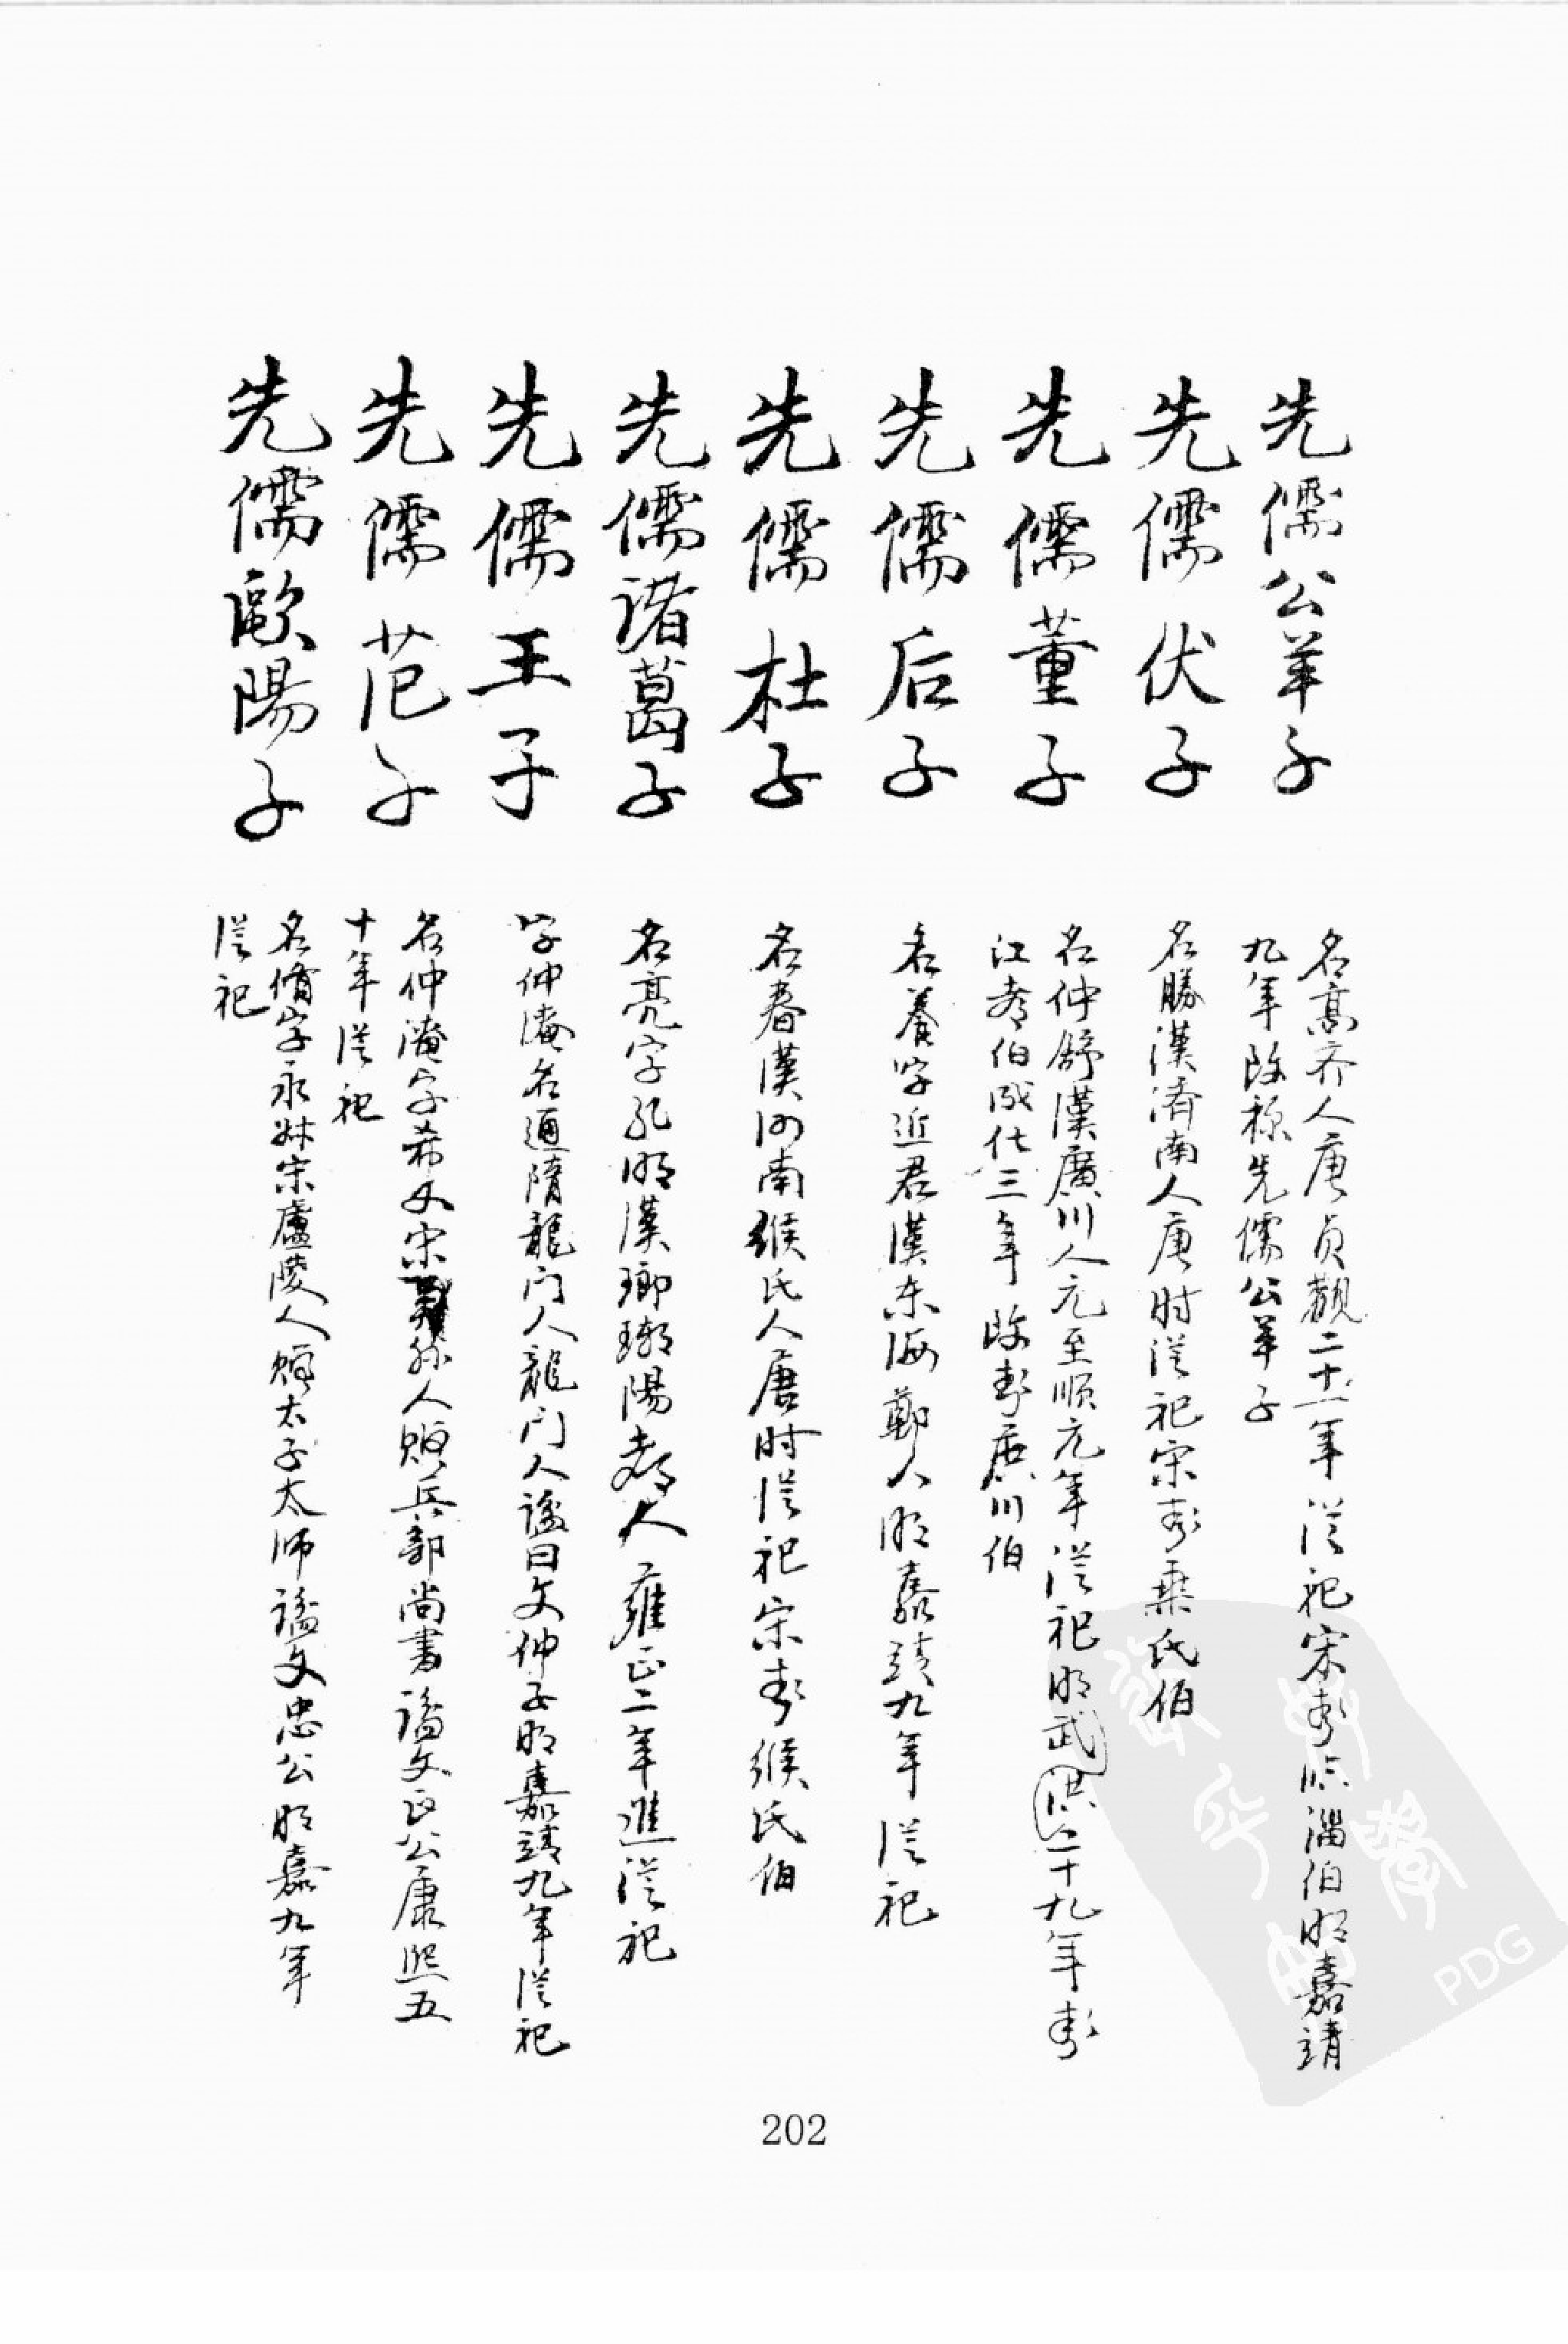 先儒公羊子
名高齐人唐贞觀二十一年從祀宋封临淄伯明嘉靖
九年改称先儒公羊子
先儒伏子
名勝漢濟南人唐时從祀宋封乘氏伯
先儒董子
名仲舒漢廣川人元至顺元年從祀明武洪二十九年封
江都伯成化三年改封廣川伯
先儒后子
名蒼字近君漢东海鄭人明嘉靖九年從祀
先儒杜子
名春漢河南缑氏人唐时從祀宋封缑氏伯
先儒諸葛子
名亮字孔明漢瑯琊陽都人雍正二年進從祀
先儒王子
字仲淹名通隋龍门人龍门人謚曰文仲子明嘉靖九年從祀
先儒范子
名仲淹字希文宋縣人贈兵部尚書謚文正公康熙五
十年從祀
先儒歐陽子
名脩字永叔宋廬陵人贈太子太师謚文忠公明嘉九年
從祀
202
PDG